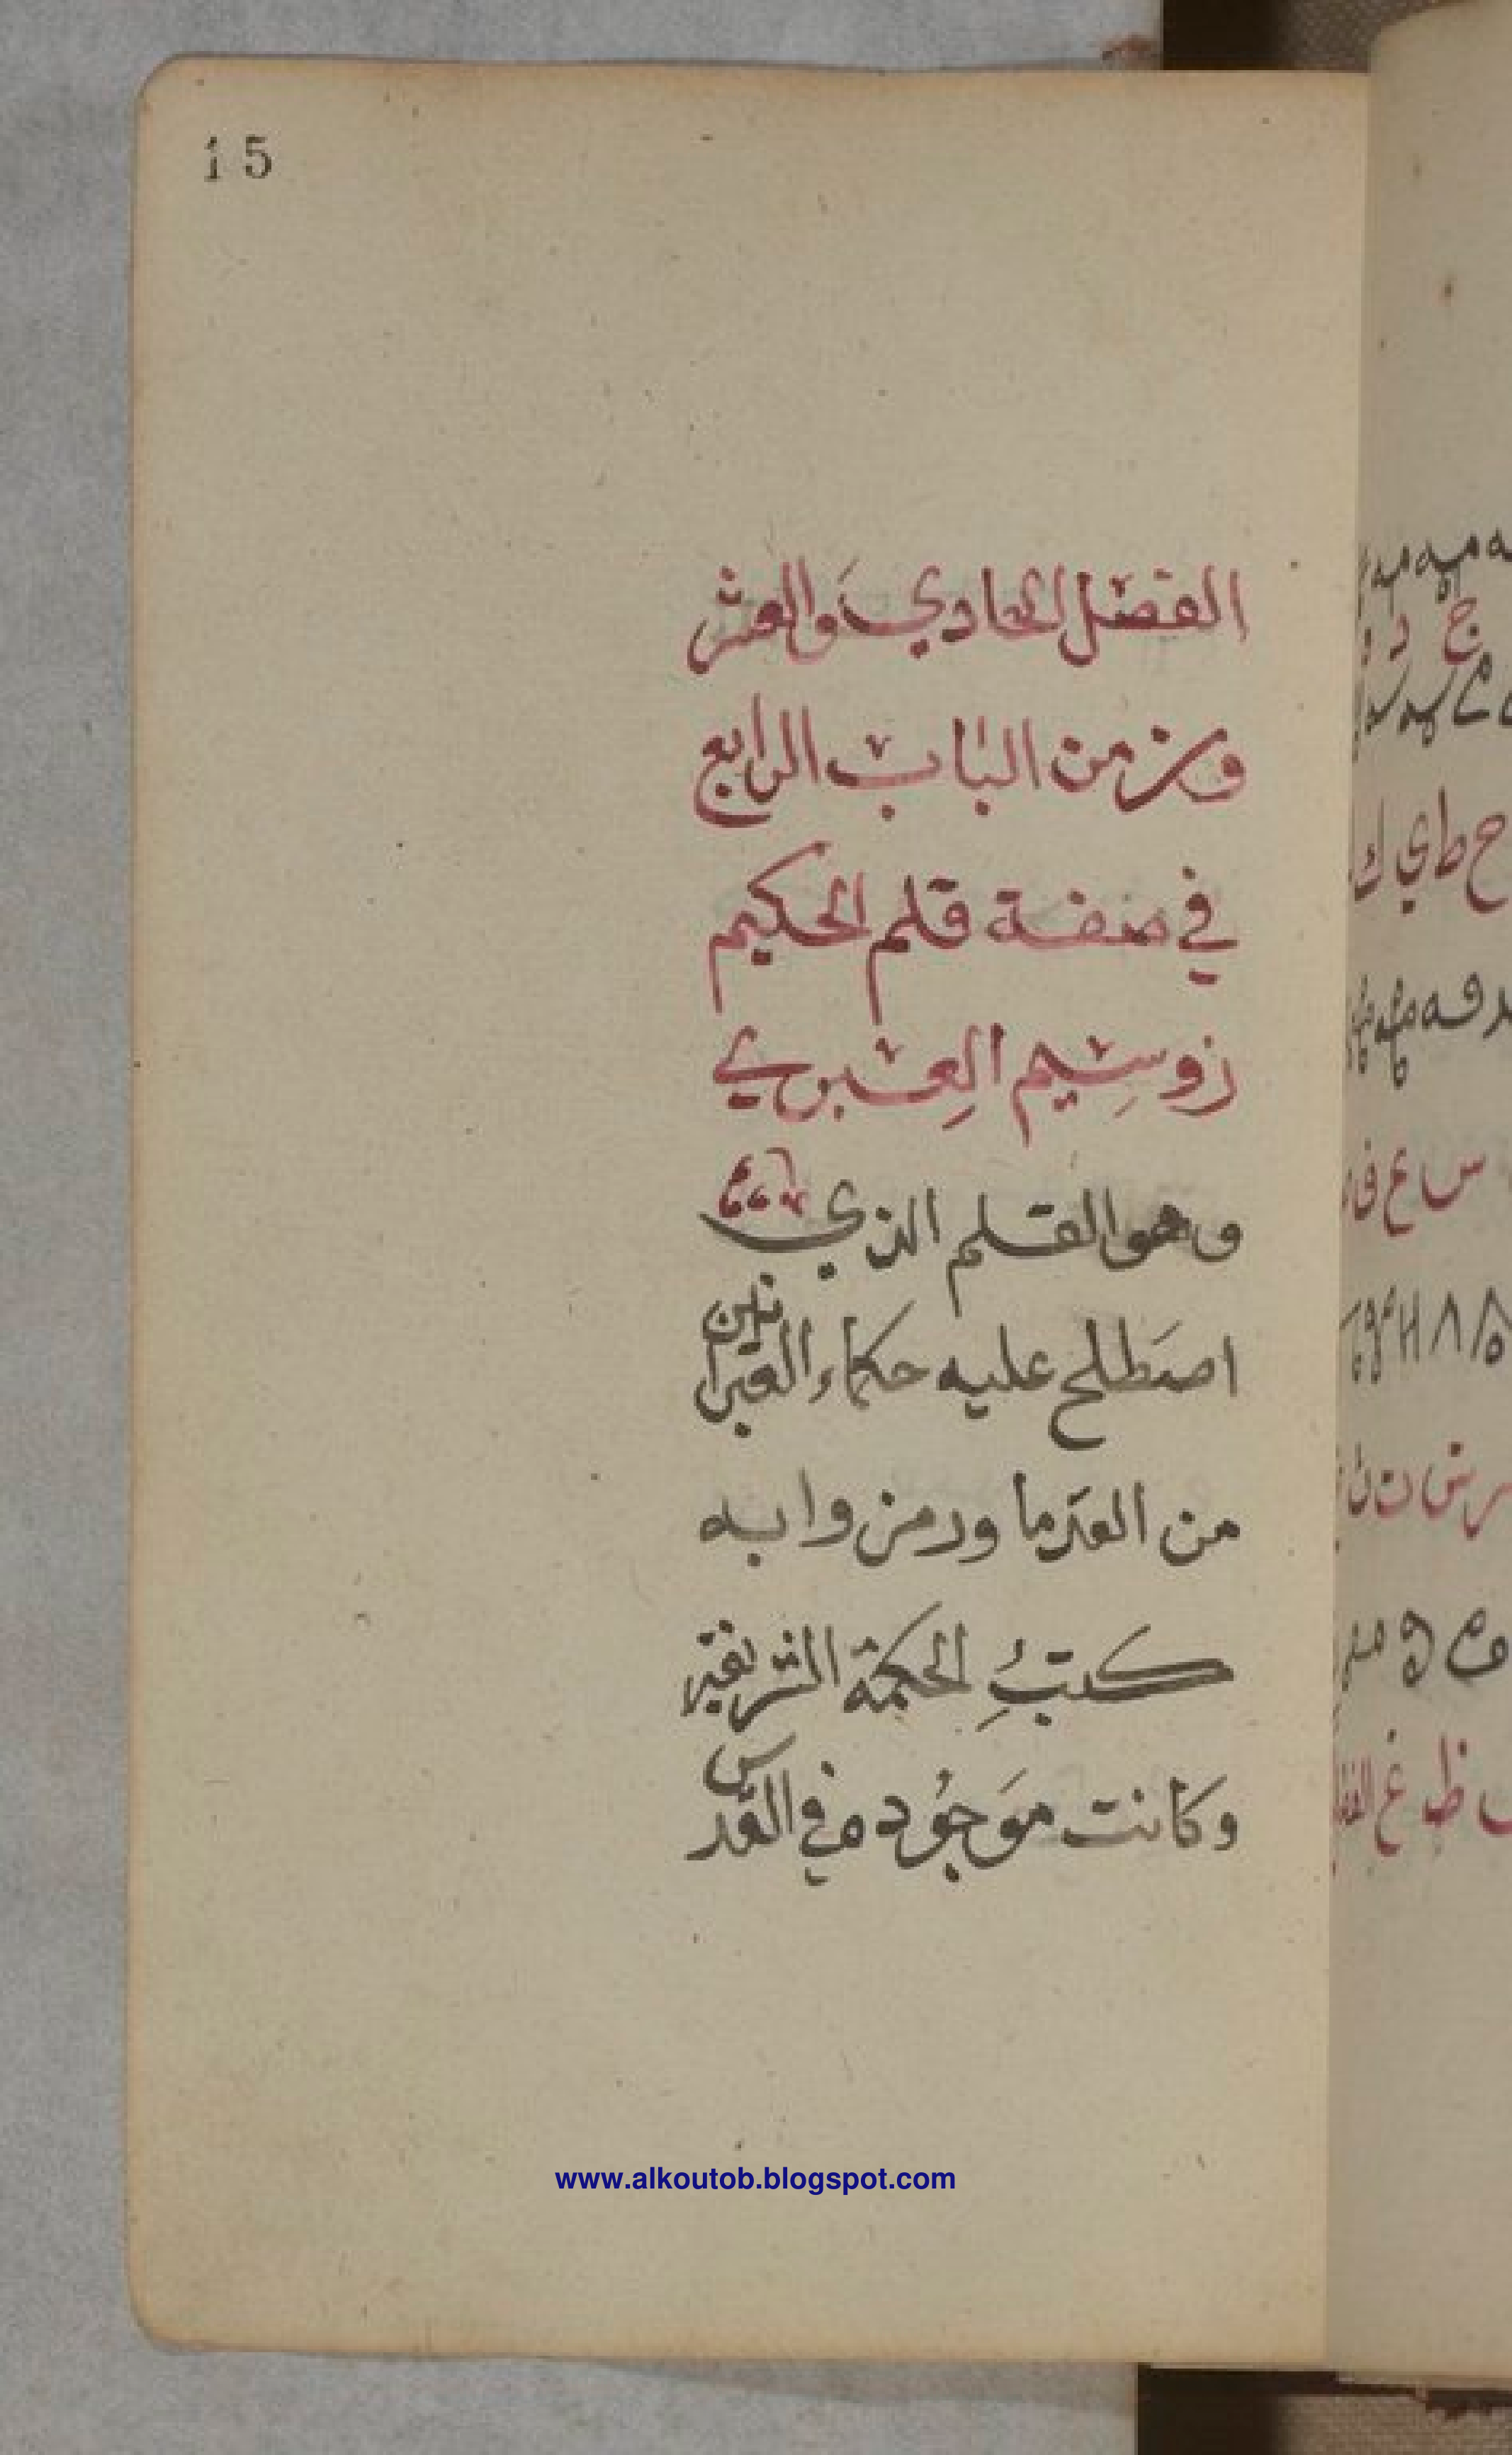 15
الفصل الحادي والعشر
ون من الباب الرابع
في صفة قلم الحكيم
زوسيم العبري
وهو القلم الذي
اصطلح عليه حكماء العبرانين
من القدما ورمزوا به
كتب الحكمة الشريفة
وكانت موجوده في القدس
www.alkoutob.blogspot.com